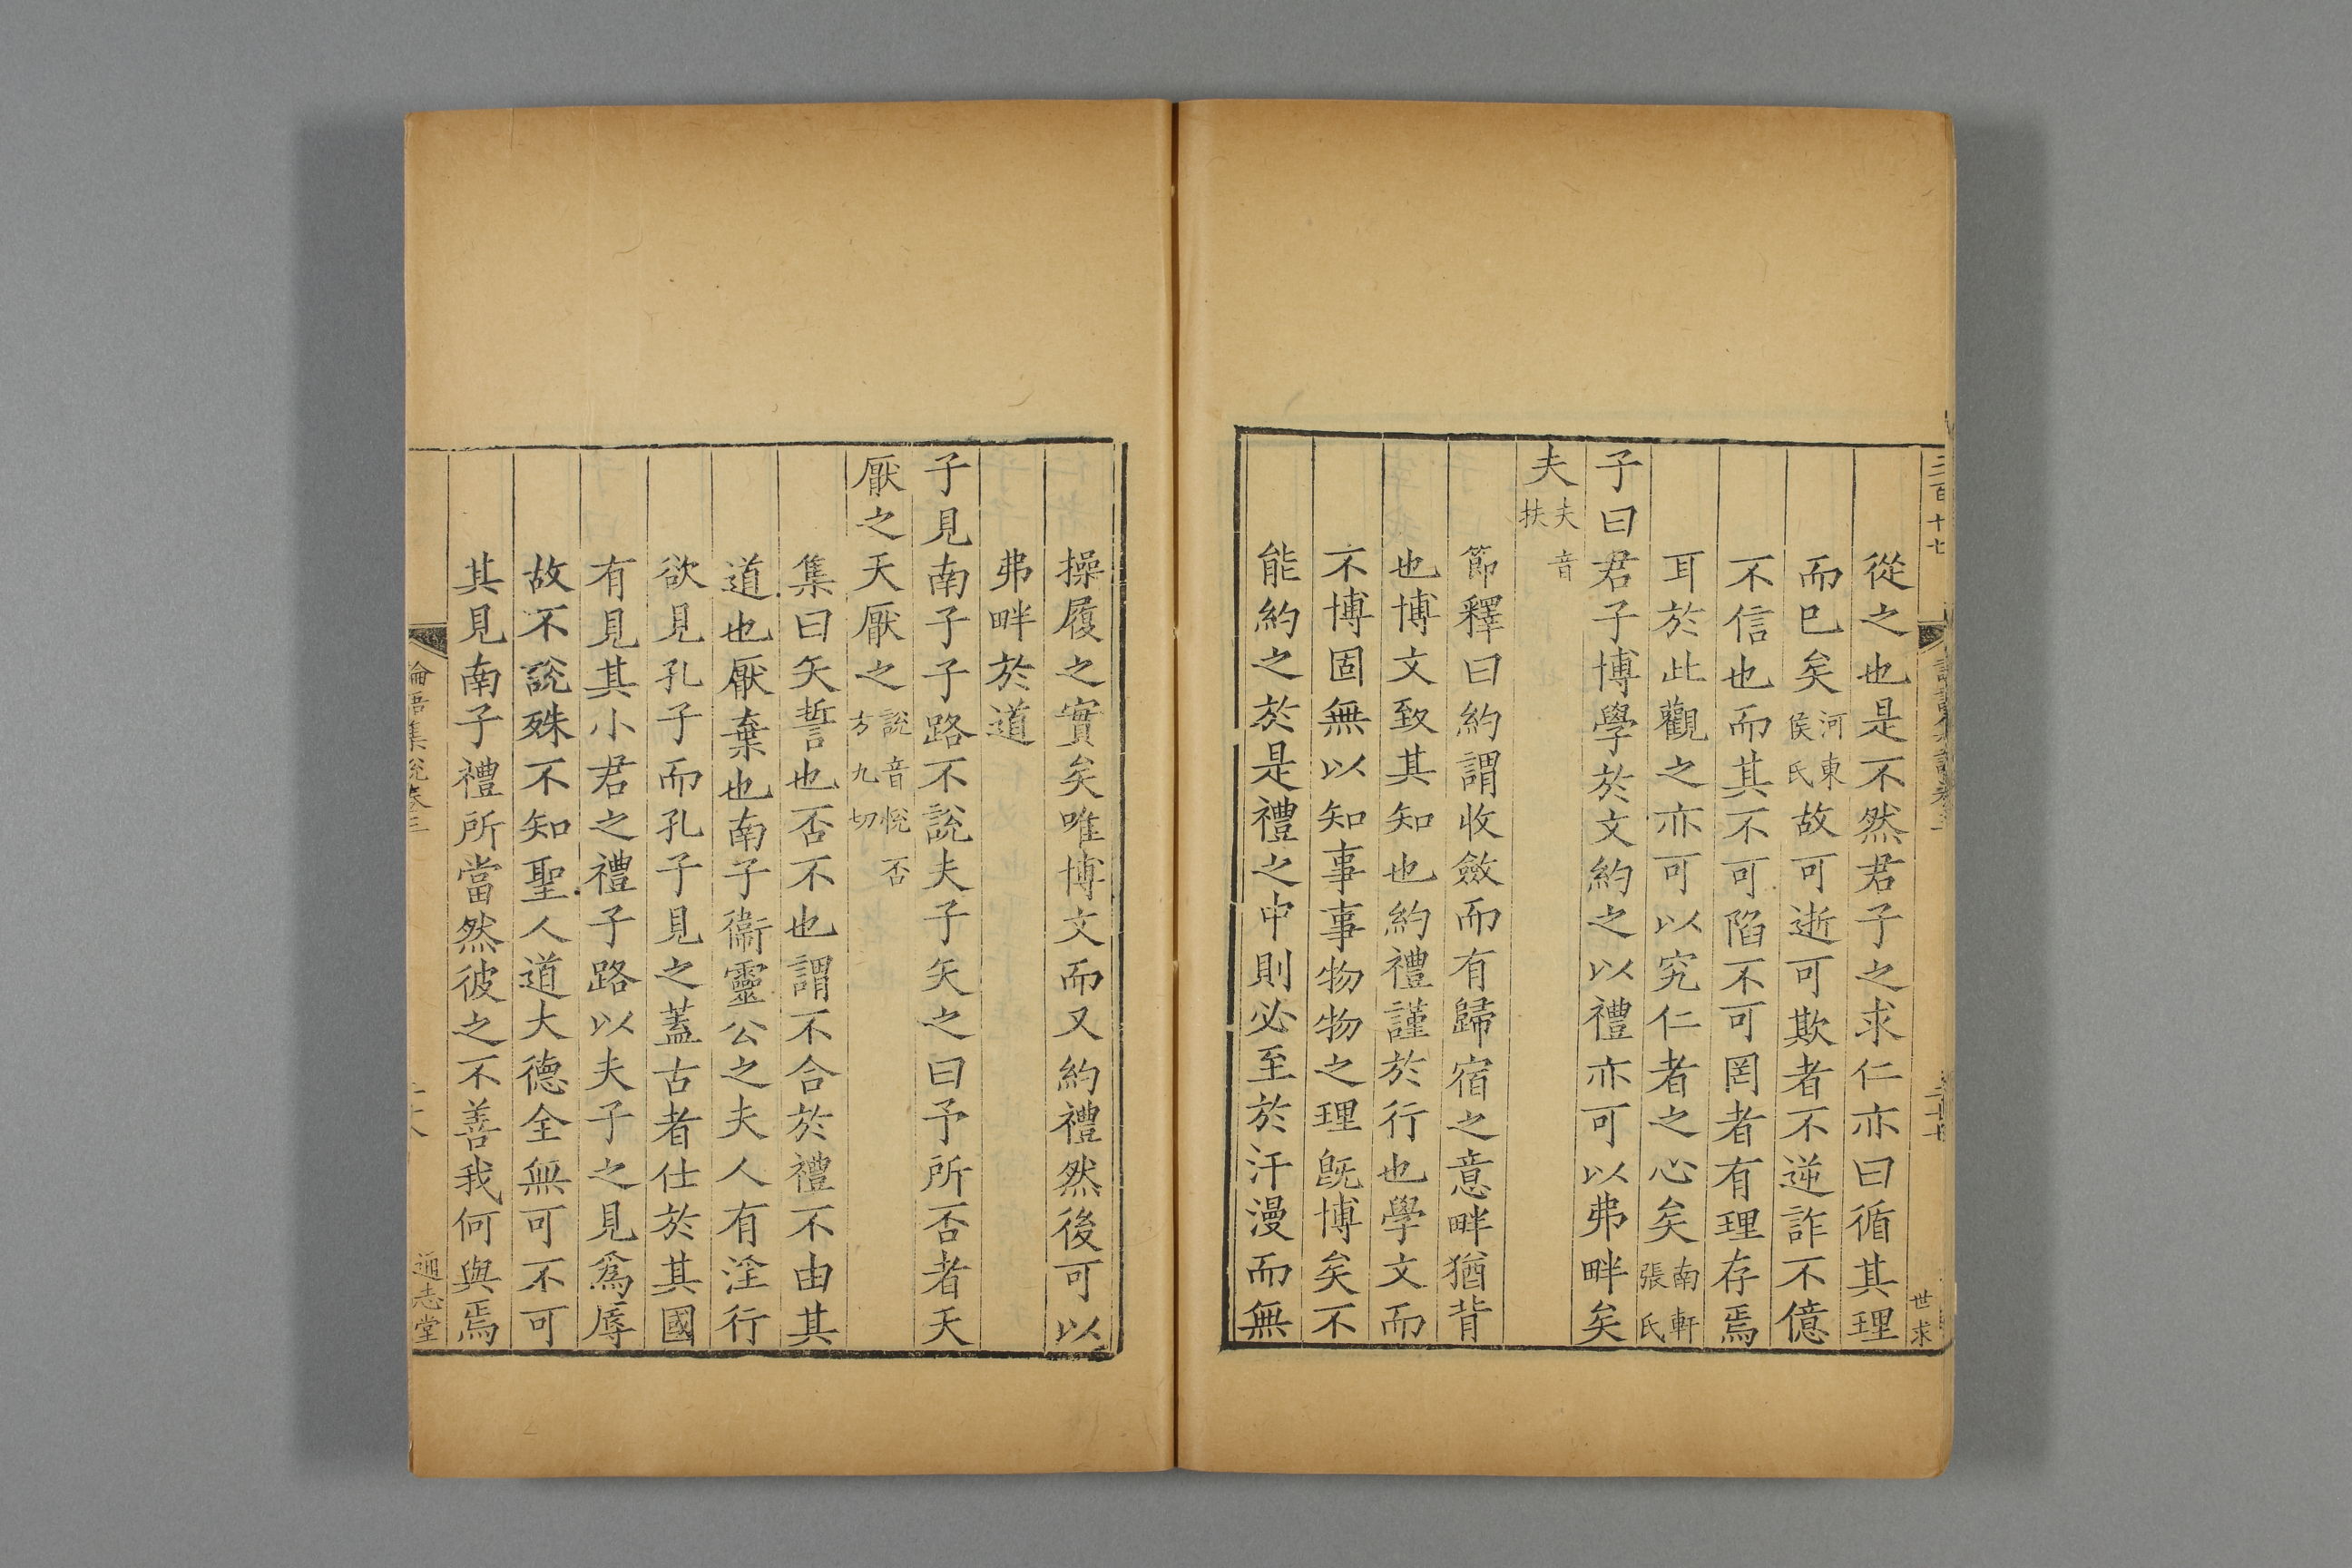 三百十七
世求
從之也是不然君子之求仁亦曰循其理
而已矣河東侯氏故可逝可欺者不逆詐不億
不信也而其不可陷不可罔者有理存焉
耳於此觀之亦可以究仁者之心矣南軒張氏
子曰君子博學於文約之以禮亦可以弗畔矣
夫夫音扶
節釋曰約謂收斂而有歸宿之意畔猶背
也博文致其知也約禮謹於行也學文而
不博固無以知事事物物之理旣博矣不
能約之於是禮之中則必至於汗漫而無
操履之實矣唯博文而又約禮然後可以
弗畔於道
子見南子子路不說夫子矢之曰予所否者天
厭之天厭之說音悅否方九切
集曰矢誓也否不也謂不合於禮不由其
道也厭棄也南子衞靈公之夫人有淫行
欲見孔子而孔子見之蓋古者仕於其國
有見其小君之禮子路以夫子之見爲辱
故不說殊不知聖人道大德全無可不可
其見南子禮所當然彼之不善我何與焉
論語集說卷三
通志堂